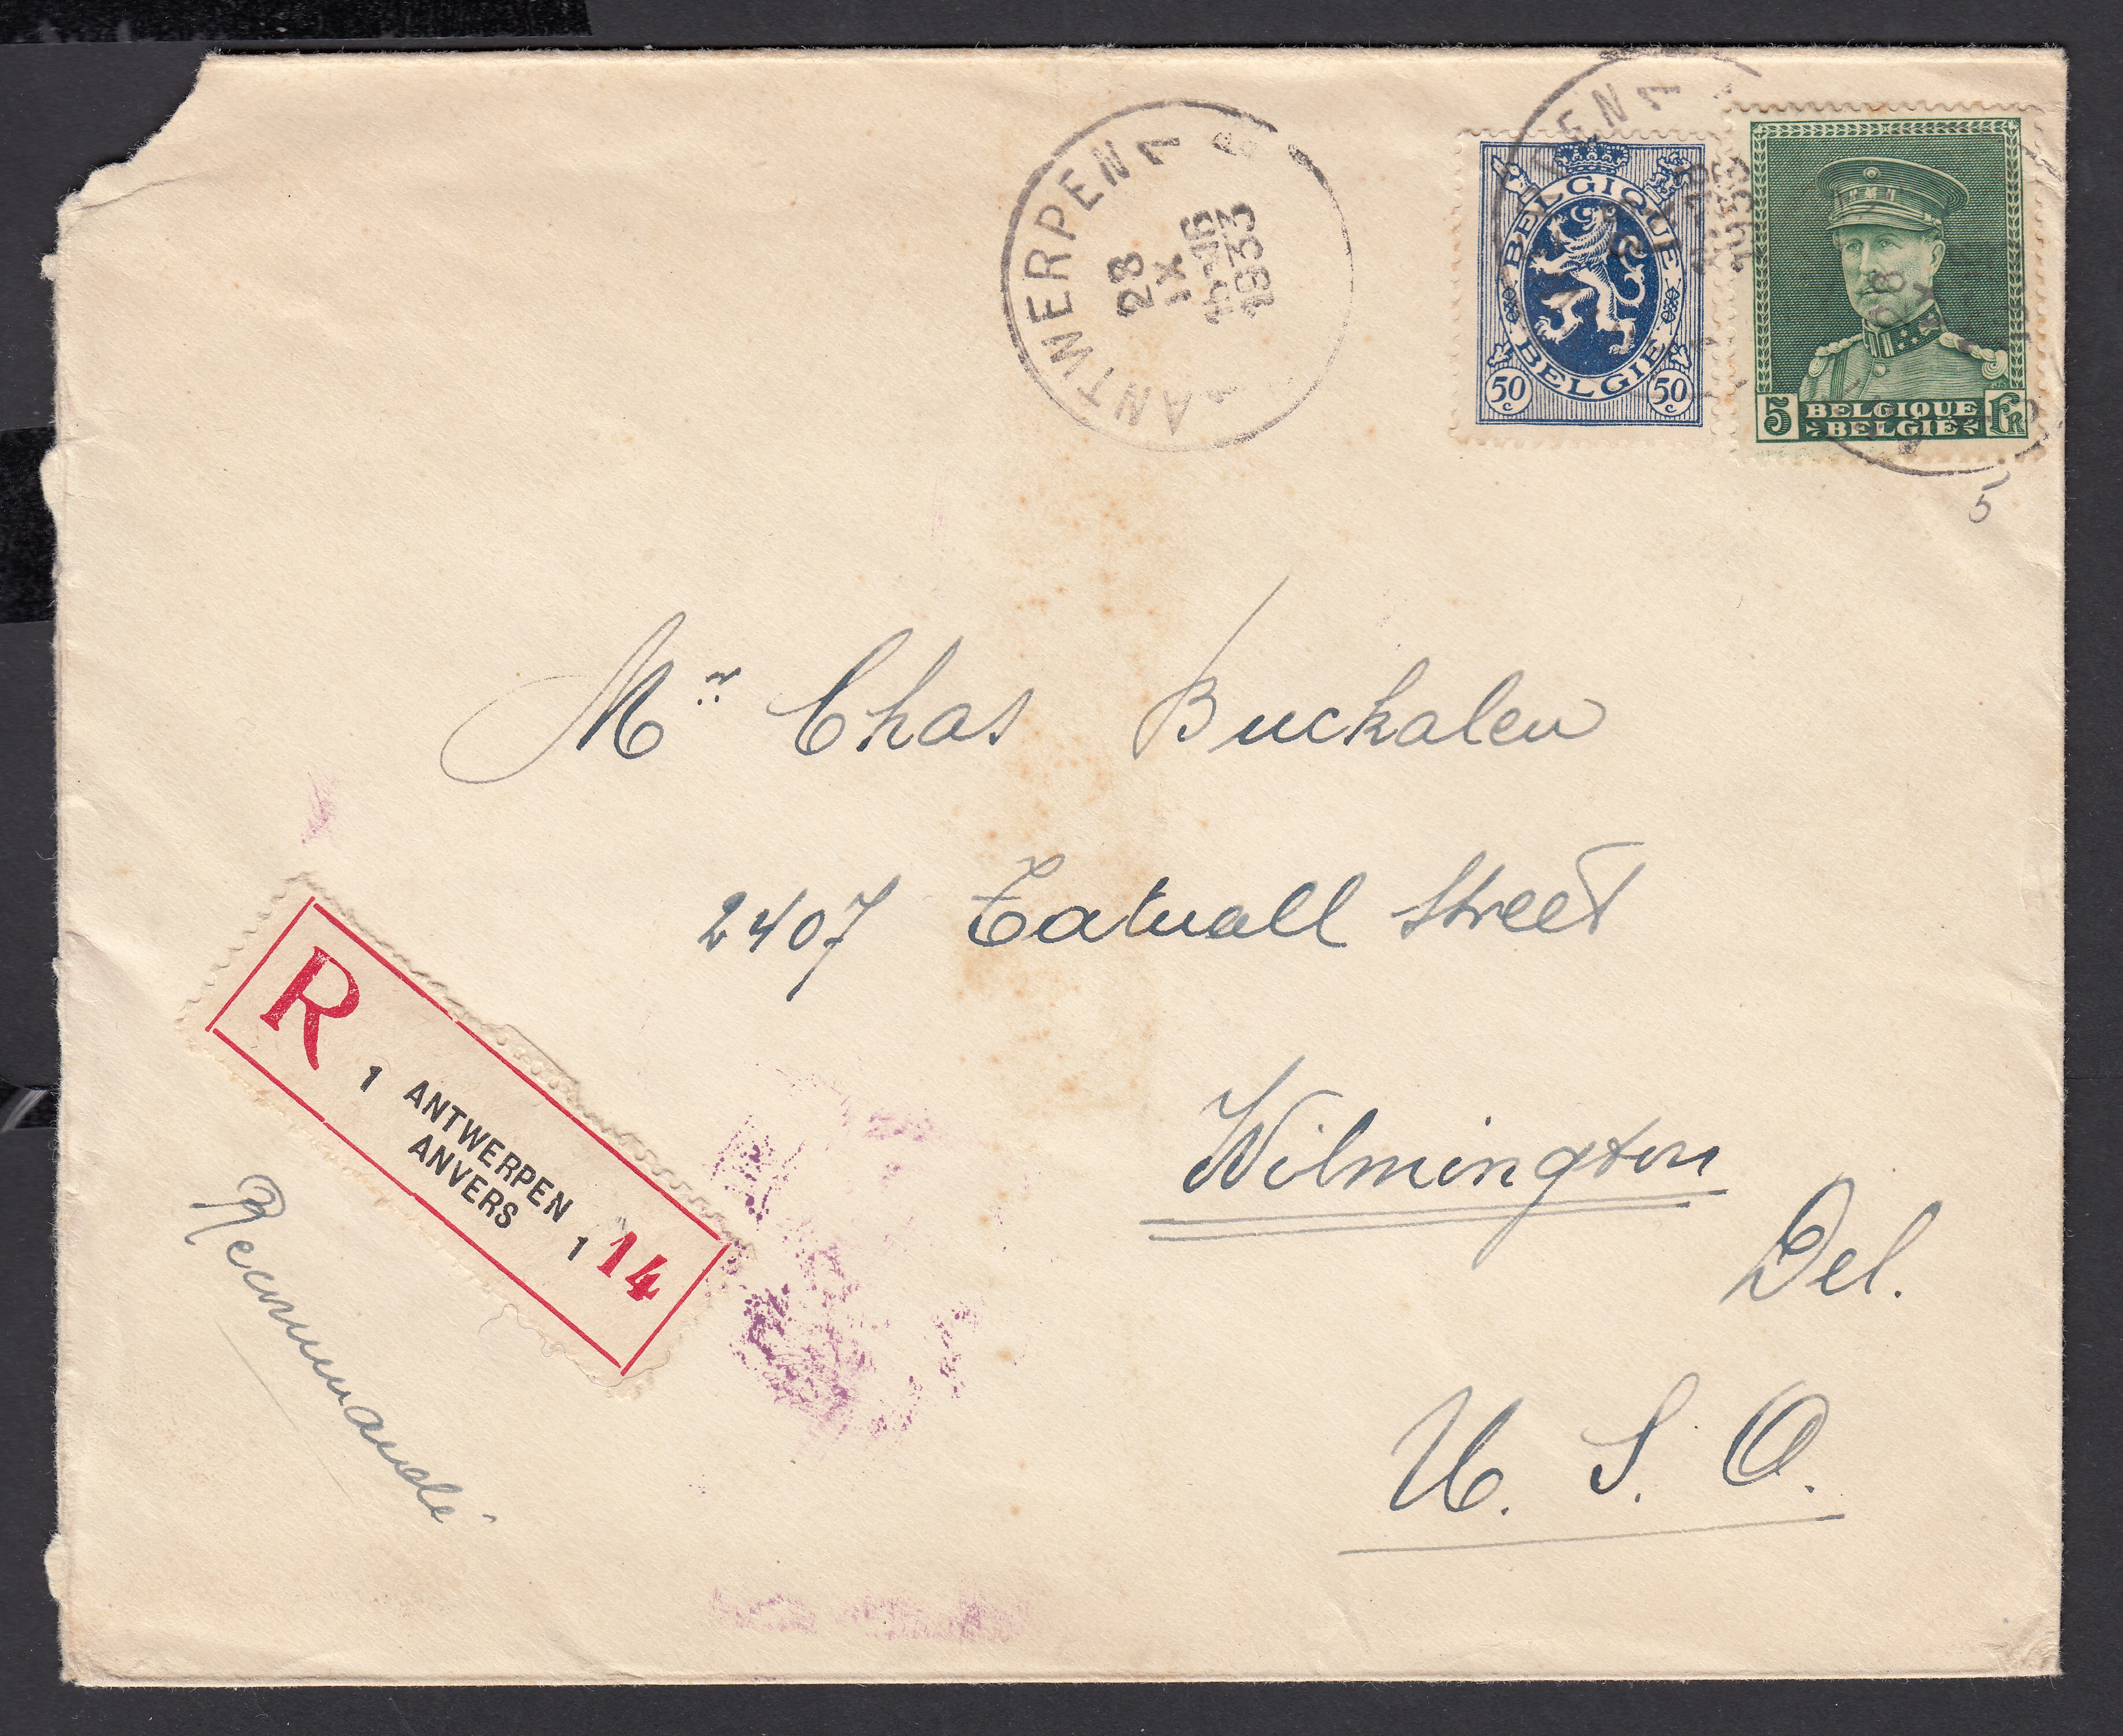 ANTWERPEN 1
28
IX
1933
BELGIQUE
BELGIË
50 c 50 c
5 BELGIQUE Fr
BELGIË
5
Mr Chas Buckalew
2407 Tatnall Street
Wilmington
Del.
U. S. A.
R
1 ANTWERPEN
ANVERS 1
14
Recommandé